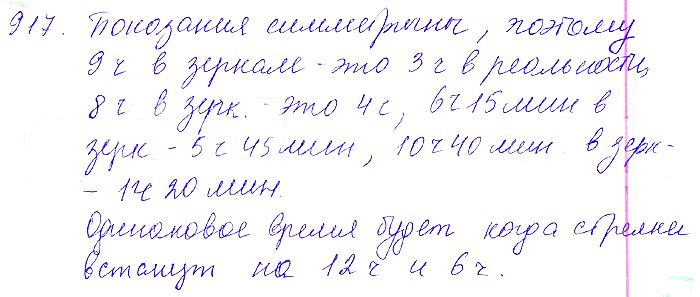 917. Показания симметричны, поэтому
9 ч в зеркале - это 3 ч в реальности,
8 ч в зерк. - это 4 с, 6 ч 15 мин в
зерк - 5 ч 45 мин, 10 ч 40 мин в зерк-
- 1ч 20 мин.
Одинаковое время будет когда стрелки
встанут на 12 ч и 6 ч.